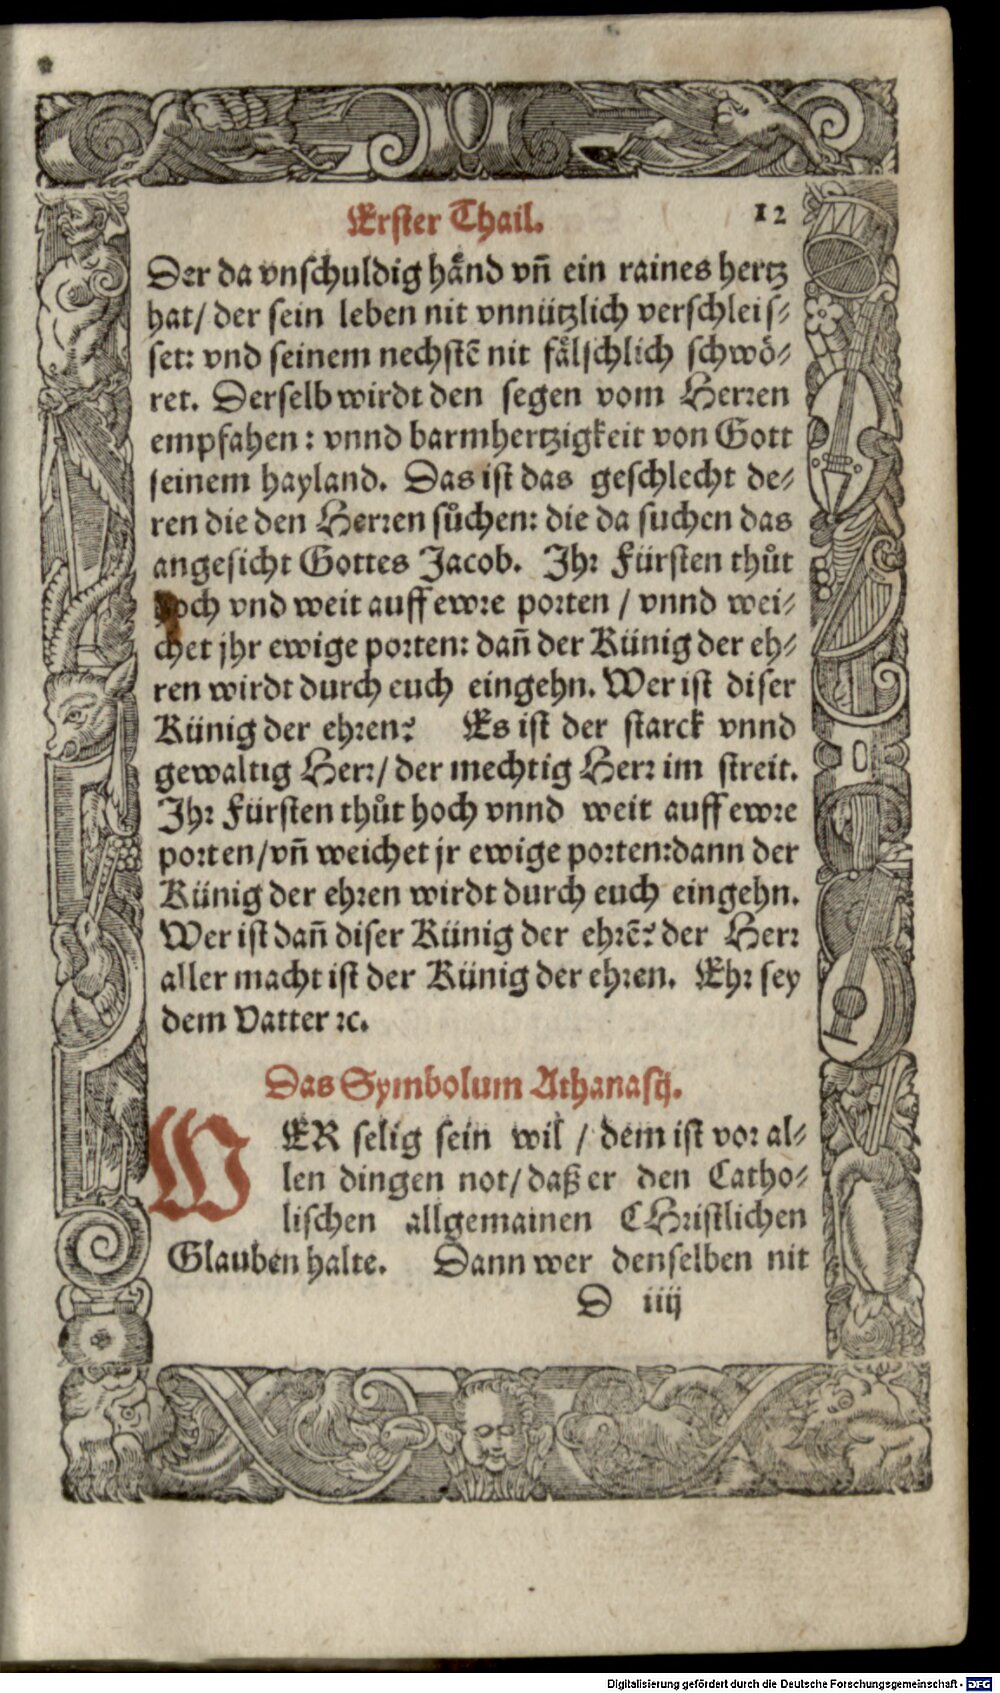 Erster Thail. 12
Der da vnschuldig hånd vñ ein raines hertz
hat/ der sein leben nit vnnützlich verschleis-
set: vnd seinem nechstẽ nit fålschlich schwö-
ret. Derselb wirdt den segen vom Herren
empfahen: vnnd barmhertzigkeit von Gott
seinem hayland. Das ist das geschlecht de-
ren die den Herren sůchen: die da suchen das
angesicht Gottes Jacob. Ihr Fürsten thůt
hoch vnd weit auff ewre porten / vnnd wei-
chet jhr ewige porten: dañ der Künig der eh-
ren wirdt durch euch eingehn. Wer ist diser
Künig der ehren? Es ist der starck vnnd
gewaltig Herr/ der mechtig Herr im streit.
Ihr Fürsten thůt hoch vnnd weit auff ewre
porten/vñ weichet jr ewige porten:dann der
Künig der ehren wirdt durch euch eingehn.
Wer ist dañ diser Künig der ehrẽ? der Herr
aller macht ist der Künig der ehren. Ehr sey
dem Vatter ꝛc.
Das Symbolum Athanasij.
WER selig sein wil / dem ist vor al-
len dingen not/ daß er den Catho-
lischen allgemainen CHristlichen
Glauben halte. Dann wer denselben nit
D iiij
Digitalisierung gefördert durch die Deutsche Forschungsgemeinschaft - DFG